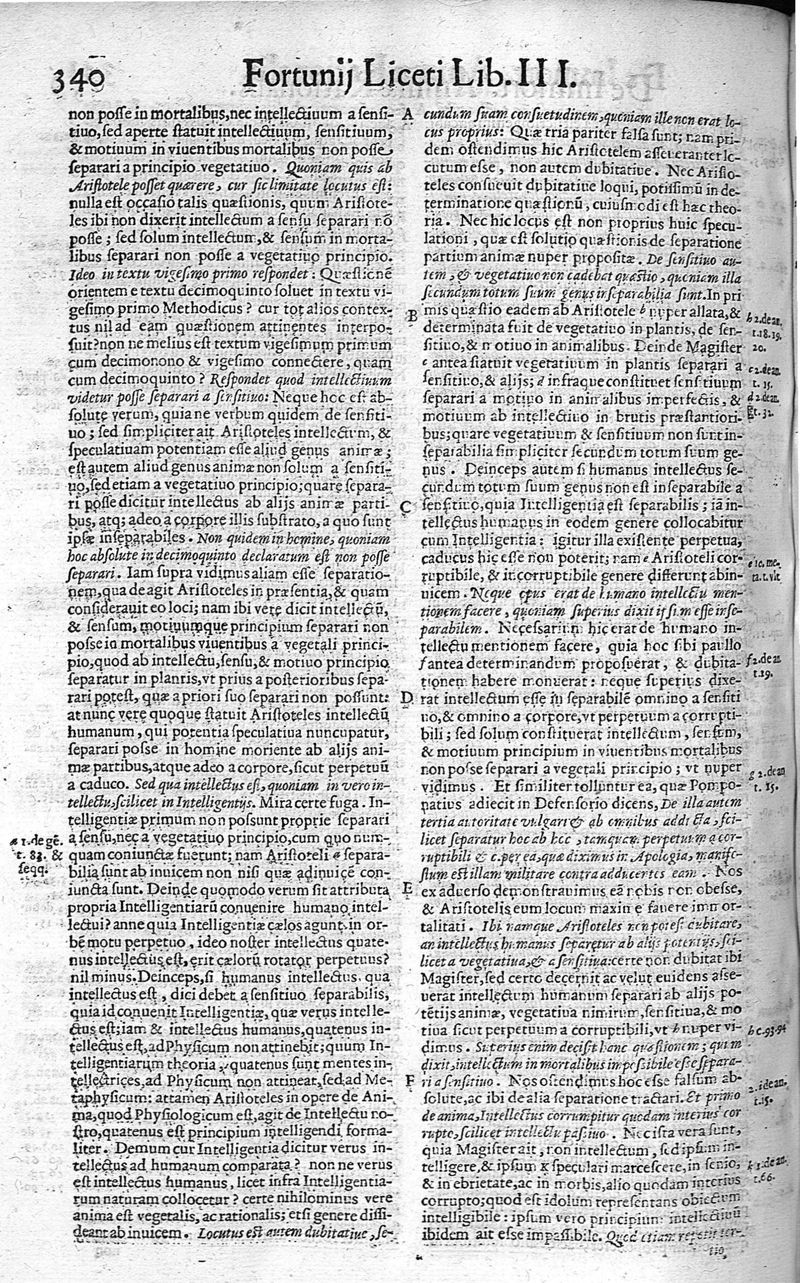 340
Fortunij Liceti Lib. III.
non posse in mortalibus, nec intellectiuum a sensi-
tiuo, sed aperte statuit intellectiuum, sensitiuum,
& motiuum in viuentibus mortalibus non posse
separari a principio vegetatiuo. Quoniam quis ab
Aristotele posset quærere, cur sic limitate locutus est:
nulla est occasio talis quæstionis, quum Aristote-
les ibi non dixerit intellectum a sensu separari nõ
posse; sed solum intellectum, & sensum in morta-
libus separari non posse a vegetatiuo principio.
Ideo in textu vigesimo primo respondet: Quæstionẽ
orientem e textu decimoquinto soluet in textu vi-
gesimo primo Methodicus? cur tot alios contex-
tus nil ad eam quæstionem attinentes interpo-
suit? non ne melius est textum vigesimum primum
cum decimonono & vigesimo connectere, quam
cum decimoquinto? Respondet quod intellectiuum
videtur posse separari a sensitiuo: Neque hoc est ab-
solute verum, quia ne verbum quidem de sensiti-
uo; sed simpliciter ait Aristoteles intellectum, &
speculatiuam potentiam esse aliud genus animæ;
est autem aliud genus animæ non solum a sensiti-
uo, sed etiam a vegetatiuo principio; quare separa-
ri posse dicitur intellectus ab alijs animæ parti-
bus, atq; adeo a corpore illis substrato, a quo sunt
ipsæ inseparabiles. Non quidem in homine, quoniam
hoc absolute in decimoquinto declaratum est non posse
separari. Iam supra vidimus aliam esse separatio-
nem, qua de agit Aristoteles in præsentia, & quam
considerauit eo loci; nam ibi vere dicit intellectũ,
& sensum, motiuumque principium separari non
posse in mortalibus viuentibus a vegetali princi-
pio, quod ab intellectu, sensu, & motiuo principio
separatur in plantis, vt prius a posterioribus sepa-
rari potest, quæ a priori suo separari non possunt:
at nunc vere quoque statuit Aristoteles intellectũ
humanum, qui potentia speculatiua nuncupatur,
separari posse in homine moriente ab alijs ani-
mæ partibus, atque adeo a corpore, sicut perpetuũ
a caduco. Sed qua intellectus est, quoniam in vero in-
tellectu, scilicet in Intelligentijs. Mira certe fuga. In-
telligentiæ primum non possunt proprie separari
a sensu, nec a vegetatiuo principio, cum quo num-
quam coniunctæ fuerunt; nam Aristoteli a separa-
bilia sunt ab inuicem non nisi quæ adinuicẽ con-
iuncta sunt. Deinde quomodo verum sit attributa
propria Intelligentiarũ conuenire humano intel-
lectui? anne quia Intelligentiæ cælos agunt in or-
bẽ motu perpetuo, ideo noster intellectus quate-
nus intellectus est, erit cælorũ rotator perpetuus?
nil minus. Deinceps, si humanus intellectus qua
intellectus est, dici debet a sensitiuo separabilis,
quia id conuenit Intelligentiæ, quæ verus intelle-
ctus est: iam & intellectus humanus, quatenus in-
tellectus est, ad Physicum non attinebit; quum In-
telligentiarum theoria, quatenus sunt mentes in-
tellectrices, ad Physicum non attineat, sed ad Me-
taphysicum: attamen Aristoteles in opere de Ani-
ma, quod Physiologicum est, agit de Intellectu no-
stro, quatenus est principium intelligendi forma-
liter. Demum cur Intelligentia dicitur verus in-
tellectus ad humanum comparata? non ne verus
est intellectus humanus, licet infra Intelligentia-
rum naturam collocetur? certe nihilominus vere
anima est vegetalis, ac rationalis; etsi genere diffi-
deant ab inuicem. Locutus est autem dubitatiue, se-
a 1. de gẽ.
t. 83. &
seqq.
A
B
C
D
E
F
cundum suam consuetudinem, quoniam ille non erat lo-
cus proprius: Quæ tria pariter falsa sunt; nam pri-
dem ostendimus hic Aristotelem asseueranter lo-
cutum esse, non autem dubitatiue. Nec Aristo-
teles consueuit dubitatiue loqui, potissimũ in de-
terminatione quæstionũ, cuiusmodi est hæc theo-
ria. Nec hic locus est non proprius huic specu-
lationi, quæ est solutio quæstionis de separatione
partium animæ nuper propositæ. De sensitiuo au-
tem, & vegetatiuo non cadebat quæstio, quoniam illa
secundum totum suum genus inseparabilia sunt. In pri
mis quæstio eadem ab Aristotele b nuper allata, &
determinata fuit de vegetatiuo in plantis, de sen-
sitiuo, & motiuo in animalibus. Deinde Magister
c antea statuit vegetatiuum in plantis separari a
sensitiuo, & alijs; d infraque constituet sensitiuum
separari a motiuo in animalibus imperfectis, &
motiuum ab intellectiuo in brutis præstantiori-
bus; quare vegetatiuum & sensitiuum non sunt in-
separabilia simpliciter secundum totum suum ge-
nus. Deinceps autem si humanus intellectus se-
cundum totum suum genus non est inseparabile a
sensitiuo, quia Intelligentia est separabilis; iã in-
tellectus humanus in eodem genere collocabitur
cum Intelligentia: igitur illa existente perpetua,
caducus hic esse non poterit; nam e Aristoteli cor-
ruptibile, & incorruptibile genere differunt abin-
uicem. Neque opus erat de humano intellectu men-
tionem facere, quoniam superius dixit ipsum esse inse-
parabilem. Necessarium hic erat de humano in-
tellectu mentionem facere, quia hoc sibi paullo
f antea determinandum proposuerat, & dubita-
tionem habere monuerat: neque superius dixe-
rat intellectum esse inseparabilẽ omnino a sensiti
uo, & omnino a corpore, vt perpetuum a corrupti-
bili; sed solum constituerat intellectum, sensum,
& motiuum principium in viuentibus mortalibus
non posse separari a vegetali principio; vt nuper
g vidimus. Et similiter tolluntur ea, quæ Pompo-
natius adiecit in Defensorio dicens, De illa autem
tertia autoritate vulgari & ab omnibus addicta, sci-
licet separatur hoc ab hoc, tamquam perpetuum a cor-
ruptibili & c. per ea, quæ diximus in Apologia, manife-
stum est illam militare contra adducentes eam. Nos
ex aduerso demonstrauimus eã nobis non obesse,
& Aristotelis eum locum maxime fauere immor-
talitati. Ibi namque Aristoteles non potest dubitare,
an intellectus humanus separetur ab alijs potentijs, sci-
licet a vegetatiua, & a sensitiua: certe non dubitat ibi
Magister, sed certo decernit ac velut euidens asse-
uerat intellectum humanum separari ab alijs po-
tẽtijs animæ, vegetatiua nimirum, sensitiua, & mo
tiua sicut perpetuum a corruptibili, vt h nuper vi-
dimus. Superius enim decisit hanc quæstionem; qum
dixit, intellectum in mortalibus impossibile esse separa-
ri a sensitiuo. Nos ostendimus hoc esse falsum ab-
solute, ac ibi de alia separatione tractari. Et primo
de anima, Intellectus corrumpitur quodam interius cor
rupto, scilicet intellectu passiuo. Nec ista vera sunt,
quia Magister ait, non intellectum, sed ipsum in-
telligere, & ipsum k speculari marcescere, in senio,
& in ebrietate, ac in morbis, alio quodam interius
corrupto; quod est idolum repræsentans obiectum
intelligibile: ipsum vero principium intellectiuũ
ibidem ait esse impassibile. Quod etiam repetit ter-
tio
b 2. de an.
t. 18. 19.
20.
c 2. de an.
t. 15.
d 2. de an.
t. 32.
e 10. me-
ta. t. vlt.
f 2. de an
t. 19.
g 2. de an
t. 15.
h c. 93. 94
2. i de an.
t. 15.
k 1. de an.
t. 66.